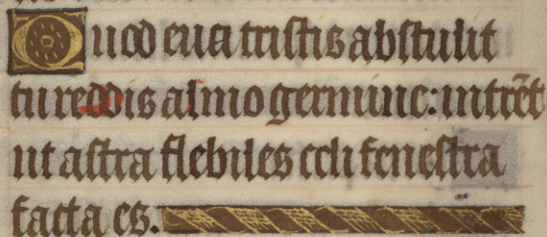 Quod eua tristis abstulit
tu reddis almo germine: intrēt
ut astra flebiles celi fenestra
facta es.